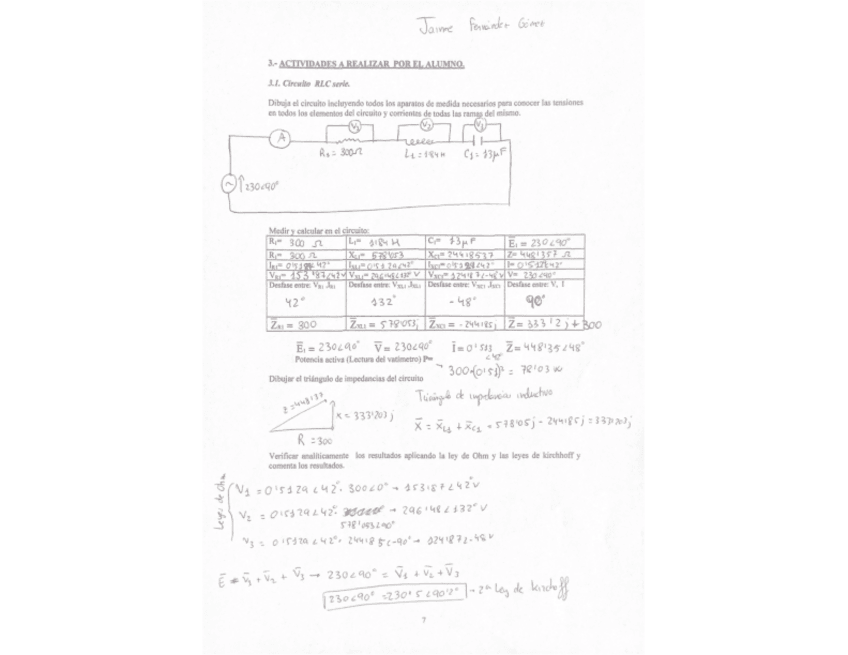 Jaime Fernández Gómez
3.- ACTIVIDADES A REALIZAR POR EL ALUMNO.
3.1. Circuito RLC serie.
Dibuja el circuito incluyendo todos los aparatos de medida necesarios para conocer las tensiones
en todos los elementos del circuito y corrientes de todas las ramas del mismo.
V1 V2 V3
A
R1= 300Ω L1= 1'84 H C1= 13μF
230∠90°
Medir y calcular en el circuito:
R1= 300 Ω L1= 1'84 H C1= 13μF E1= 230∠90°
R1= 300 Ω XL1= 578'053 XC1= 244'18537 Z= 448'1357 Ω
Desfase entre: VR1 ,IR1 Desfase entre: VXL1 ,IXL1 Desfase entre: VXC1 ,IXC1 Desfase entre: V, I
42° 132° -48° 90°
ZR1 = 300 ZXL1 = 578'053j ZXC1 = -244'185j Z= 333'2j + 300
E1= 230∠90° V= 230∠90° I= 0'513 ∠42° Z= 448'135∠48°
Potencia activa (Lectura del vatímetro) P=
300·(0'51)² = 78'03 W
Dibujar el triángulo de impedancias del circuito
Triángulo de impedancias inductivo
Z=448'135
X= 333'203j
R=300
X = XL1 + XC1 = 578'05j - 244'185j = 333'203j
Verificar analíticamente los resultados aplicando la ley de Ohm y las leyes de kirchhoff y
comenta los resultados.
Leyes de Ohm
V1 = 0'5129∠42°· 300∠0° → 153'87∠42°V
V2 = 0'5129∠42°· → 296'48∠132°V
578'053∠90°
V3 = 0'5129∠42°· 244'185∠-90° → 124'87∠-48V
E = V1 + V2 + V3 → 230∠90° = V1 + V2 + V3
230∠90° = 230'5∠90'2° → 2ª Ley de kirchoff
7